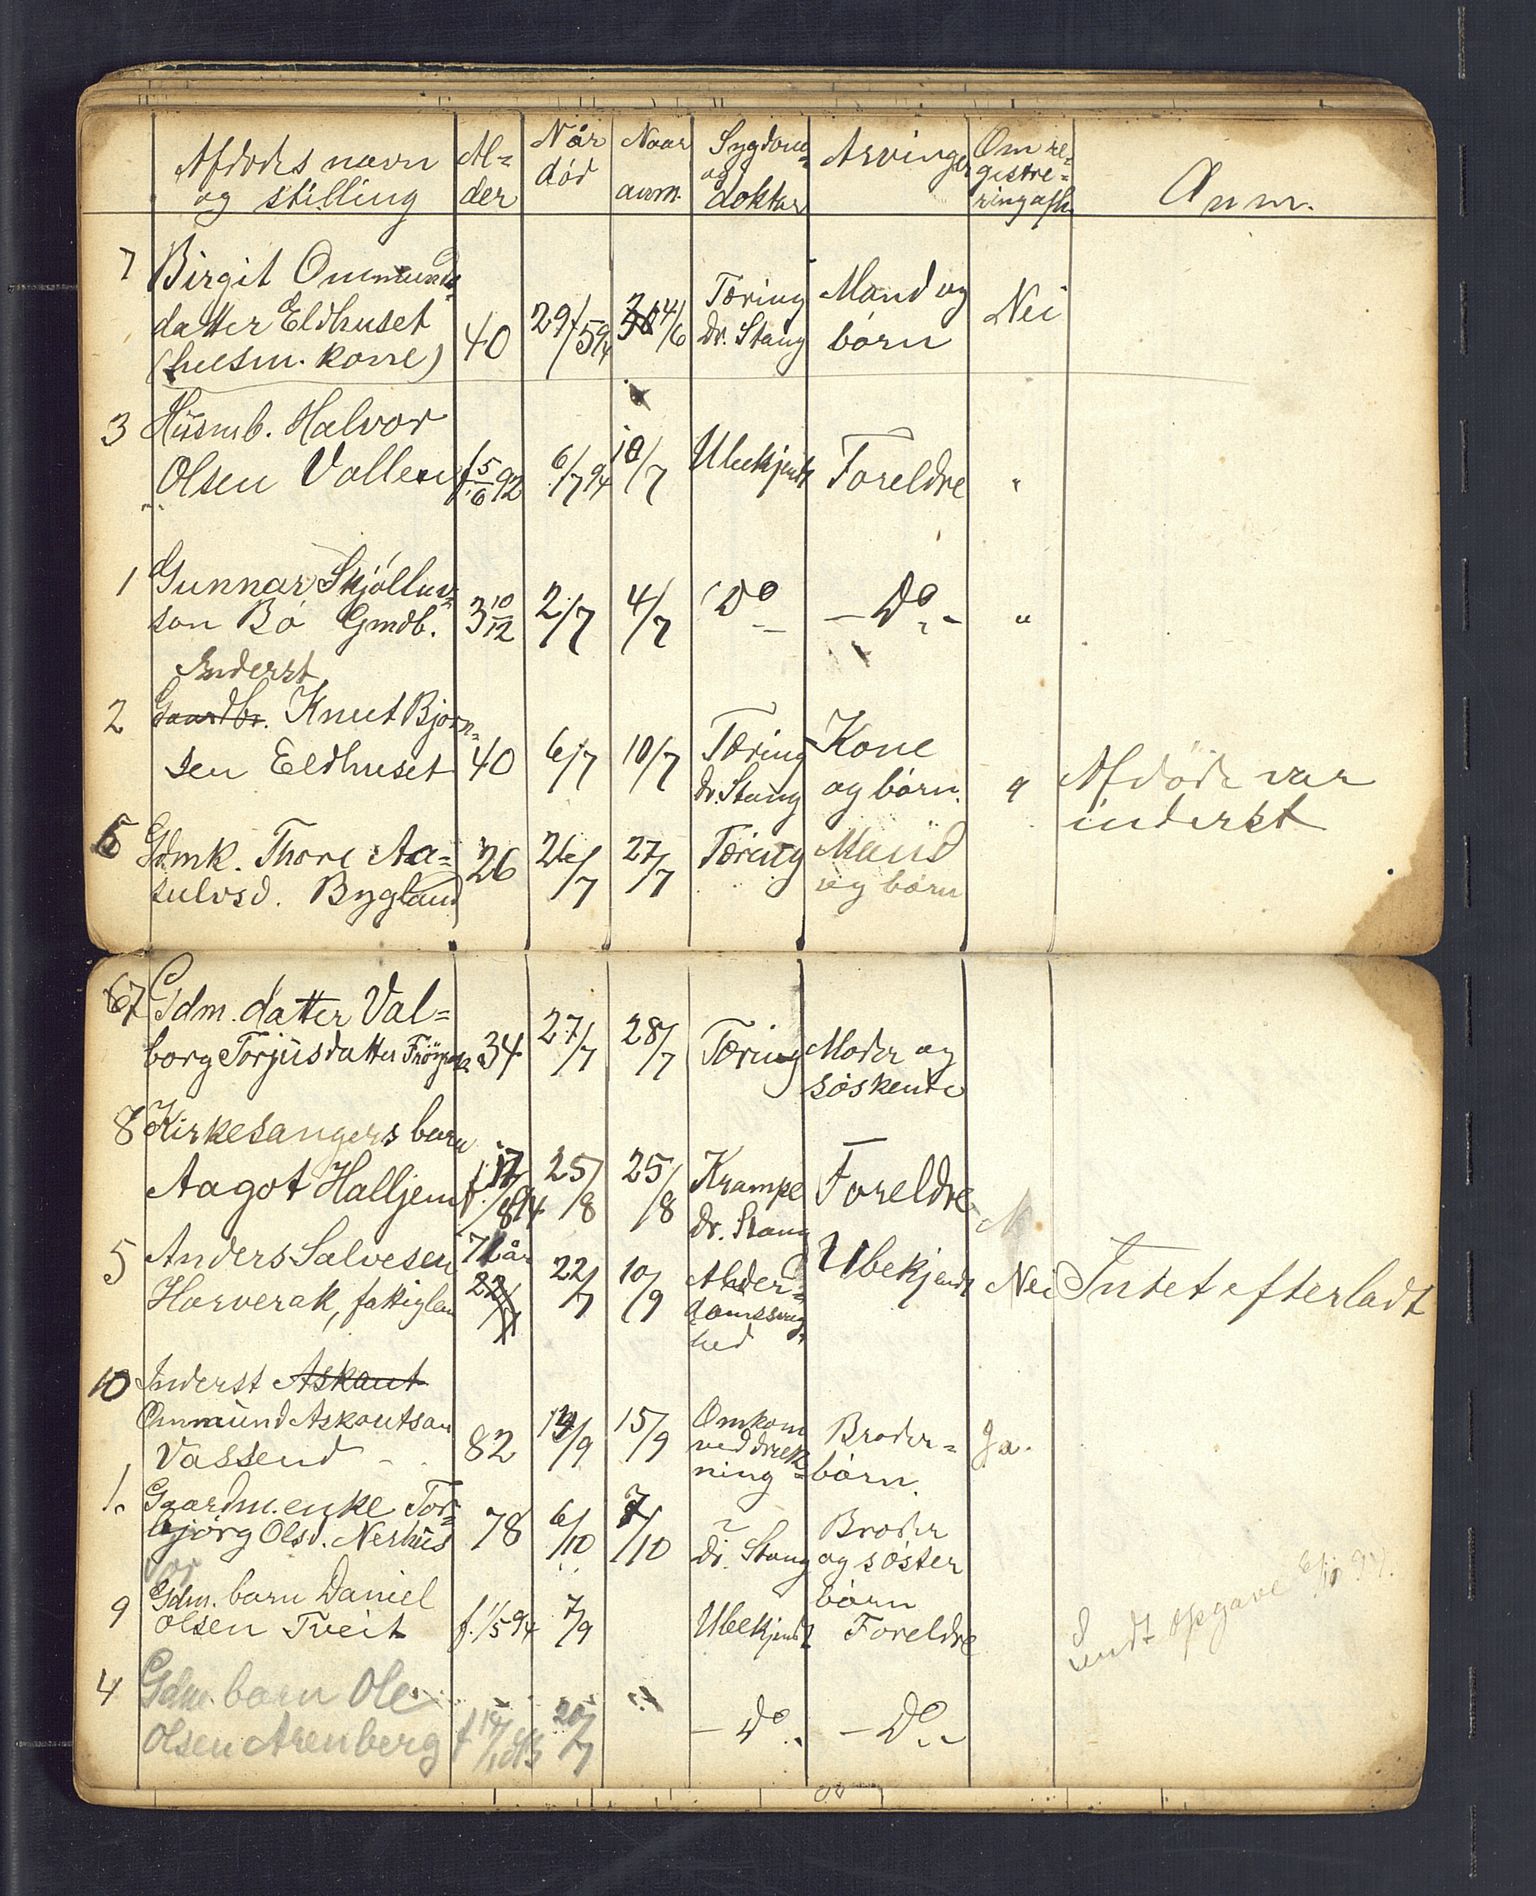 Afdødes navn og stilling | Al=der | Når død | Naar anm. | Sygdom og doktor | Arvinger | Om re=gistre=ring | Anm.
7 Birgit Ommunds=
datter Eldhuset
(husm. kone) 40 29/5 94 4/6 Tæring dr. Stang Mand og børn Nei
3 Husmb. Halvor
Olsen Vallen f. 5/6 92 6/7 94 10/7 Ubekjendt Foreldre "
1 Gunnar
son Bø Gmdb. 3 10/12 2/7 4/7 Do - Do - "
Inderst
2 Gaardbr. Knut Bjørn=
sen Eldhuset 40 6/7 10/7 Tæring dr. Stang Kone og børn. " Afdøde var inderst
6 Gdmk. Thore Aa=
sulvsd. Bygland 26 26/7 27/7 Tæring Mand og børn
7 Gdm. datter Val=
borg Torjusdatter 34 27/7 28/7 Tæring Moder og søskende
8 Kirkesangers barn
Aagot Halljem f. 17/8 94 25/8 25/8 Krampe dr. Stang Foreldre
5 Anders Salvesen
Horverak, fattiglem 71 år 22/7 10/9 Alder=domssvag=hed Ubekjendt Nei Intet efterladt
10 Inderst Askaut
Ommund Askoutson
Vassend - 82 14/9 15/9 Omkom ved druk=ning Broder=børn. Ja.
1. Gaardm. enke Tor=
bjørg Olsd. Nerhus 78 6/10 7/10 ? dr. Stang Broder og søster børn
9 Gdm. barn Daniel
Olsen Tveit f. 1/5 94 7/9 Ubekjendt Foreldre
Sendt opgave 6/10 94.
4 Gdm. barn Ole
Olsen Arenberg 20/7 - Do - - Do -